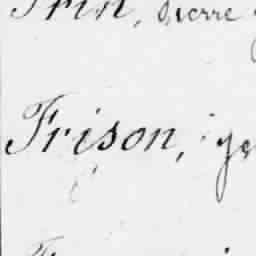 Frin, Pierre
Frison,